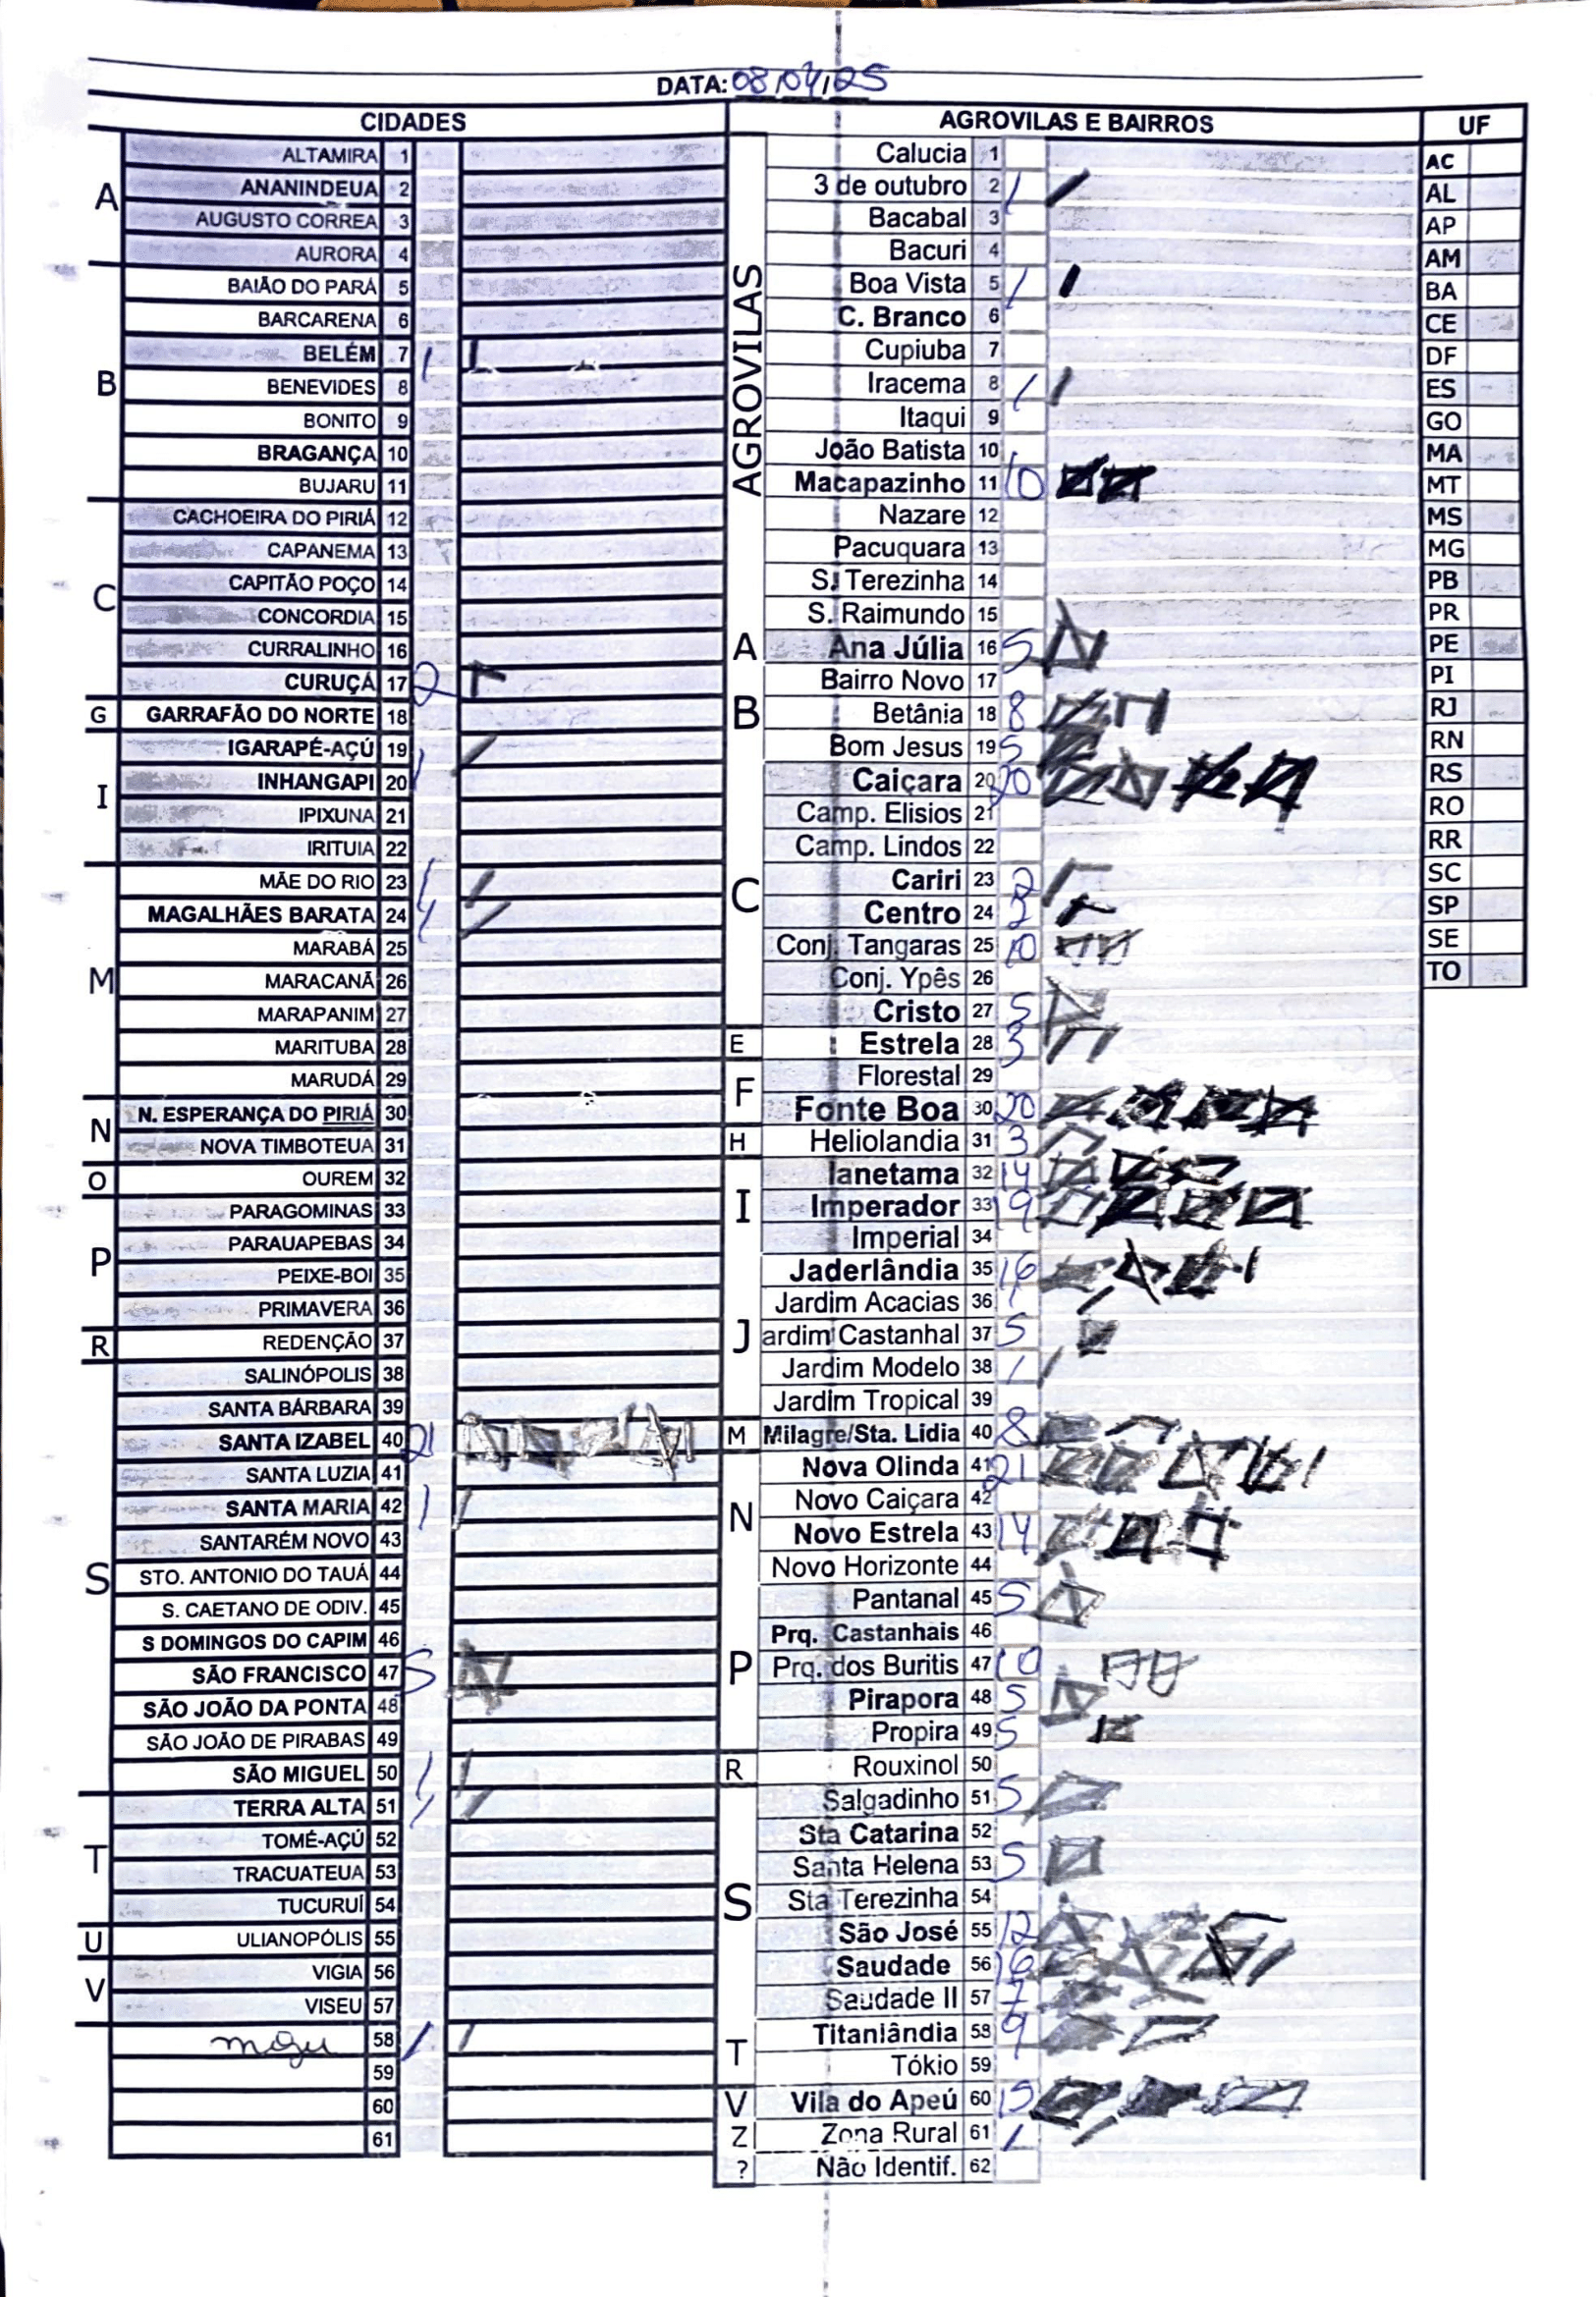 DATA: 08/04/25
CIDADES
A
ALTAMIRA 1
ANANINDEUA 2
AUGUSTO CORREA 3
AURORA 4
B
BAIÃO DO PARÁ 5
BARCARENA 6
BELÉM 7 1
BENEVIDES 8
BONITO 9
BRAGANÇA 10
BUJARU 11
C
CACHOEIRA DO PIRIÁ 12
CAPANEMA 13
CAPITÃO POÇO 14
CONCORDIA 15
CURRALINHO 16
CURUÇÁ 17 2
G
GARRAFÃO DO NORTE 18
I
IGARAPÉ-AÇÚ 19
INHANGAPI 20 1
IPIXUNA 21
IRITUIA 22
M
MÃE DO RIO 23 1
MAGALHÃES BARATA 24 1
MARABÁ 25
MARACANÃ 26
MARAPANIM 27
MARITUBA 28
MARUDÁ 29
N
N. ESPERANÇA DO PIRIÁ 30
NOVA TIMBOTEUA 31
O
OUREM 32
P
PARAGOMINAS 33
PARAUAPEBAS 34
PEIXE-BOI 35
PRIMAVERA 36
R
REDENÇÃO 37
S
SALINÓPOLIS 38
SANTA BÁRBARA 39
SANTA IZABEL 40 21
SANTA LUZIA 41
SANTA MARIA 42 1
SANTARÉM NOVO 43
STO. ANTONIO DO TAUÁ 44
S. CAETANO DE ODIV. 45
S DOMINGOS DO CAPIM 46
SÃO FRANCISCO 47 5
SÃO JOÃO DA PONTA 48
SÃO JOÃO DE PIRABAS 49
SÃO MIGUEL 50 1
T
TERRA ALTA 51 1
TOMÉ-AÇÚ 52
TRACUATEUA 53
TUCURUÍ 54
U
ULIANOPÓLIS 55
V
VIGIA 56
VISEU 57
moju 58 1
59
60
61
AGROVILAS E BAIRROS
AGROVILAS
Calucia 1
3 de outubro 2 1
Bacabal 3
Bacuri 4
Boa Vista 5 1
C. Branco 6
Cupiuba 7
Iracema 8 1
Itaqui 9
João Batista 10
Macapazinho 11 10
Nazare 12
Pacuquara 13
S. Terezinha 14
S. Raimundo 15
A
Ana Júlia 16 5
B
Bairro Novo 17
Betânia 18 8
Bom Jesus 19 5
C
Caiçara 20 20
Camp. Elisios 21
Camp. Lindos 22
Cariri 23 2
Centro 24 2
Conj. Tangaras 25 10
Conj. Ypês 26
Cristo 27 5
E
Estrela 28 3
F
Florestal 29
Fonte Boa 30 20
H
Heliolandia 31 3
I
Ianetama 32 14
Imperador 33 19
Imperial 34
J
Jaderlândia 35 16
Jardim Acacias 36 1
ardim Castanhal 37 5
Jardim Modelo 38 1
Jardim Tropical 39
M
Milagre/Sta. Lidia 40 8
N
Nova Olinda 41 21
Novo Caiçara 42
Novo Estrela 43 14
Novo Horizonte 44
P
Pantanal 45 5
Prq. Castanhais 46
Prq. dos Buritis 47 10
Pirapora 48 5
Propira 49 5
R
Rouxinol 50
S
Salgadinho 51 5
Sta Catarina 52
Santa Helena 53 5
Sta Terezinha 54
São José 55 12
Saudade 56 16
Saudade II 57 7
T
Titanlândia 58 9
Tókio 59
V
Vila do Apeú 60 15
Z
Zona Rural 61 1
?
Não Identif. 62
UF
AC
AL
AP
AM
BA
CE
DF
ES
GO
MA
MT
MS
MG
PB
PR
PE
PI
RJ
RN
RS
RO
RR
SC
SP
SE
TO